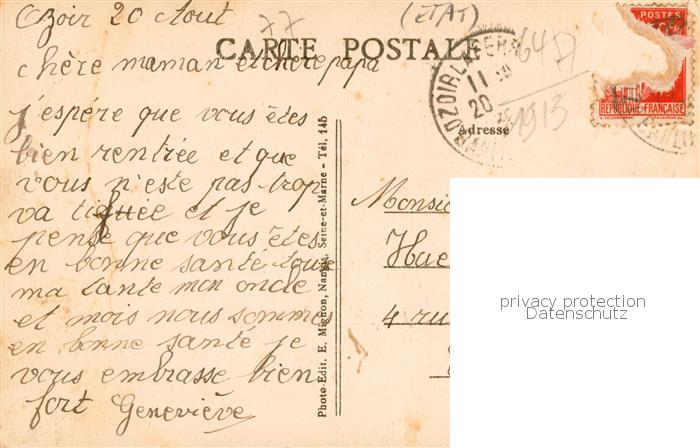 Ozoir 20 Aout
77
(ETAT)
CARTE POSTALE
chère maman et chère papa
j'espère que vous êtes
bien rentrée et que
vous n'este pas trop
va tiguée et je
pense que vous êtes
en bonne santé tous
ma tante mon oncle
et mois nous sommes
en bonne santé je
vous embrasse bien
fort Geneviève
Photo-Edit. E. Mignon, Nangis, Seine-et-Marne - Tél. 145
POSTES
REPUBLIQUE FRANÇAISE
OZOIR LA FERR
11
20
1913
Adresse
Monsie
Hue
4 ru
privacy protection
Datenschutz